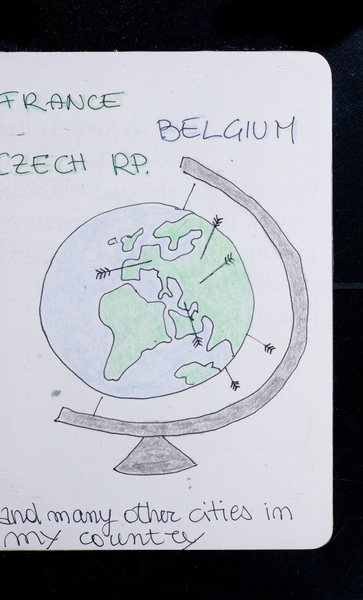 FRANCE
BELGIUM
CZECH RP.
and many other cities in
my country